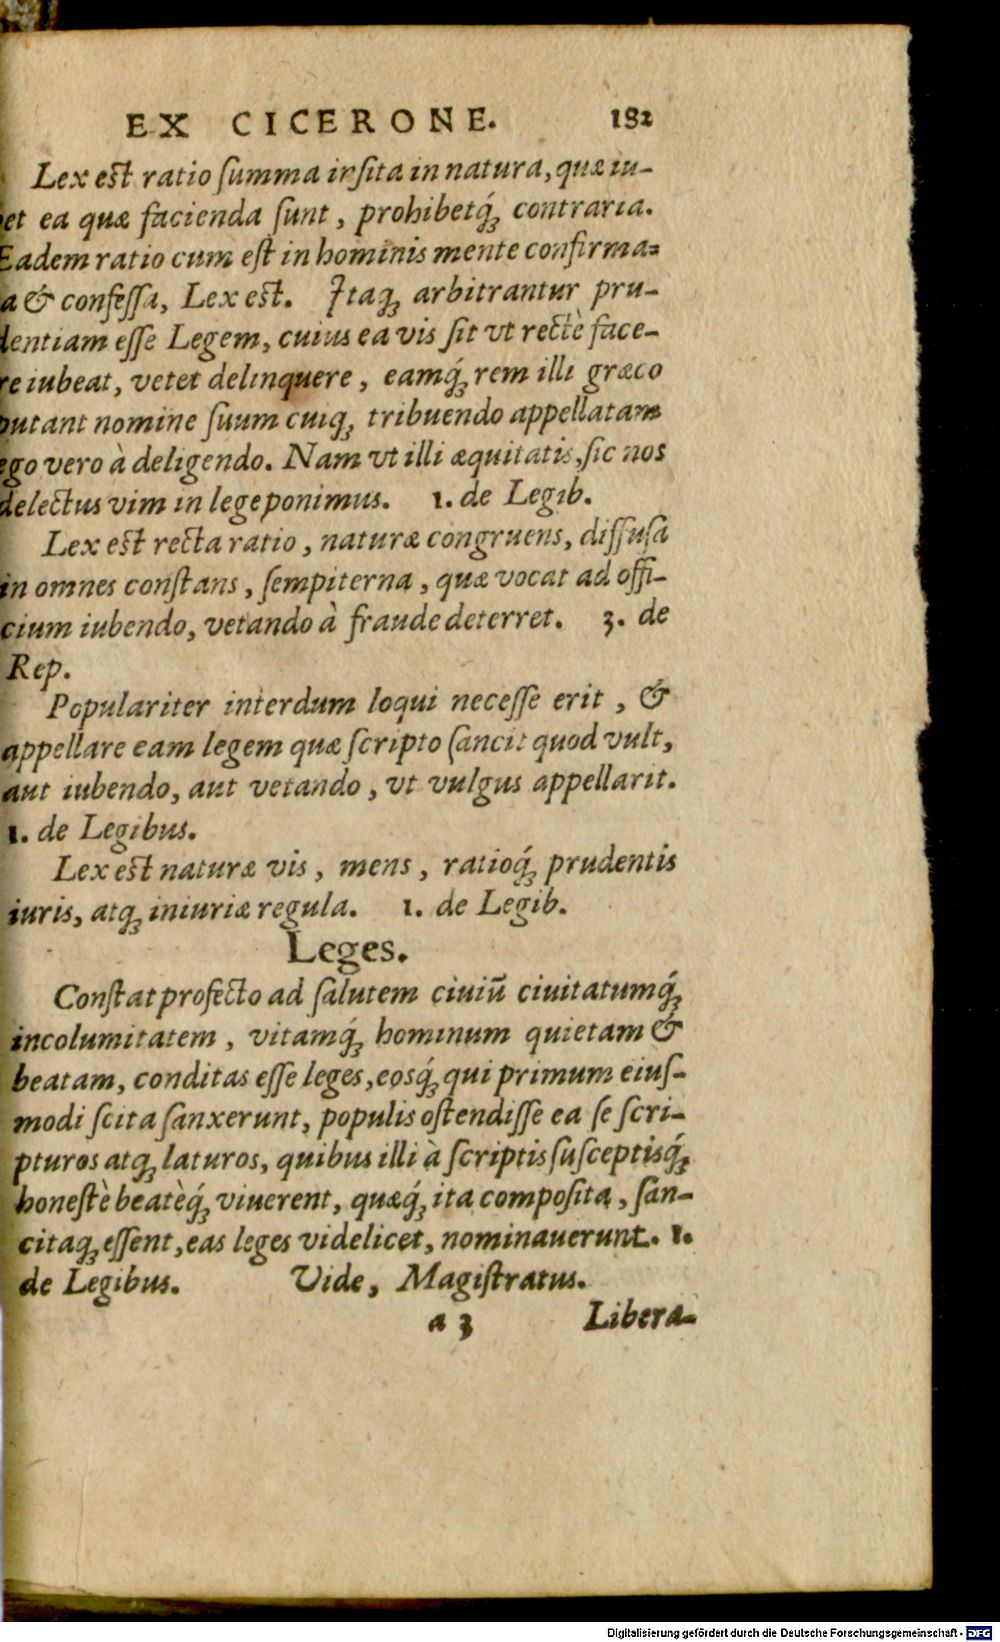 EX CICERONE. 182
Lex est ratio ſumma inſita in natura, quæ iu-
bet ea quæ facienda ſunt, prohibetq́ꝫ contraria.
Eadem ratio cum eſt in hominis mente confirma-
a & confeſſa, Lex est. Itaqꝫ arbitrantur pru-
dentiam eſſe Legem, cuius ea vis ſit vt rectè face-
re iubeat, vetet delinquere, eamq́ꝫ rem illi græco
putant nomine ſuum cuiqꝫ tribuendo appellatam
ego vero à deligendo. Nam vt illi æquitatis, ſic nos
delectus vim in lege ponimus. 1. de Legib.
Lex est recta ratio, naturæ congruens, diffuſa
in omnes conſtans, ſempiterna, quæ vocat ad offi-
cium iubendo, vetando à fraude deterret. 3. de
Rep.
Populariter interdum loqui neceſſe erit, &
appellare eam legem quæ ſcripto ſancit quod vult,
aut iubendo, aut vetando, vt vulgus appellarit.
1. de Legibus.
Lex est naturæ vis, mens, ratioq́ꝫ prudentis
iuris, atqꝫ iniuriæ regula. 1. de Legib.
Leges.
Conſtat profecto ad ſalutem ciuiū ciuitatumq́ꝫ
incolumitatem, vitamq́ꝫ hominum quietam &
beatam, conditas eſſe leges, eosq́ꝫ qui primum eiuſ-
modi ſcita ſanxerunt, populis oſtendiſſe ea ſe ſcri-
pturos atqꝫ laturos, quibus illi à ſcriptis ſuſceptisq́ꝫ
honeſtè beatèq́ꝫ viuerent, quæq́ꝫ ita compoſita, ſan-
citaqꝫ eſſent, eas leges videlicet, nominauerunt. 1.
de Legibus. Vide, Magiſtratus.
a 3 Libera-
Digitalisierung gefördert durch die Deutsche Forschungsgemeinschaft - DFG